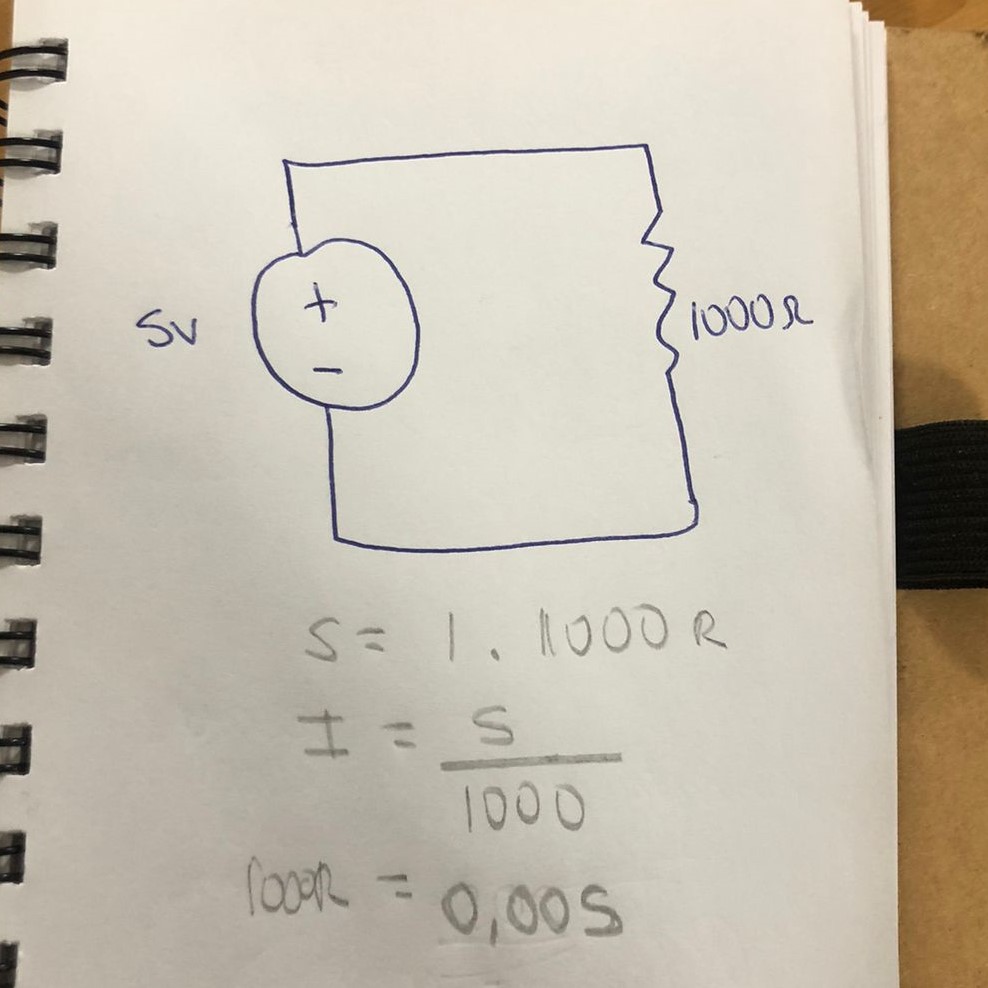 5v
+
-
1000Ω
5 = I . 1000 R
I = 5
1000
1000R = 0,005